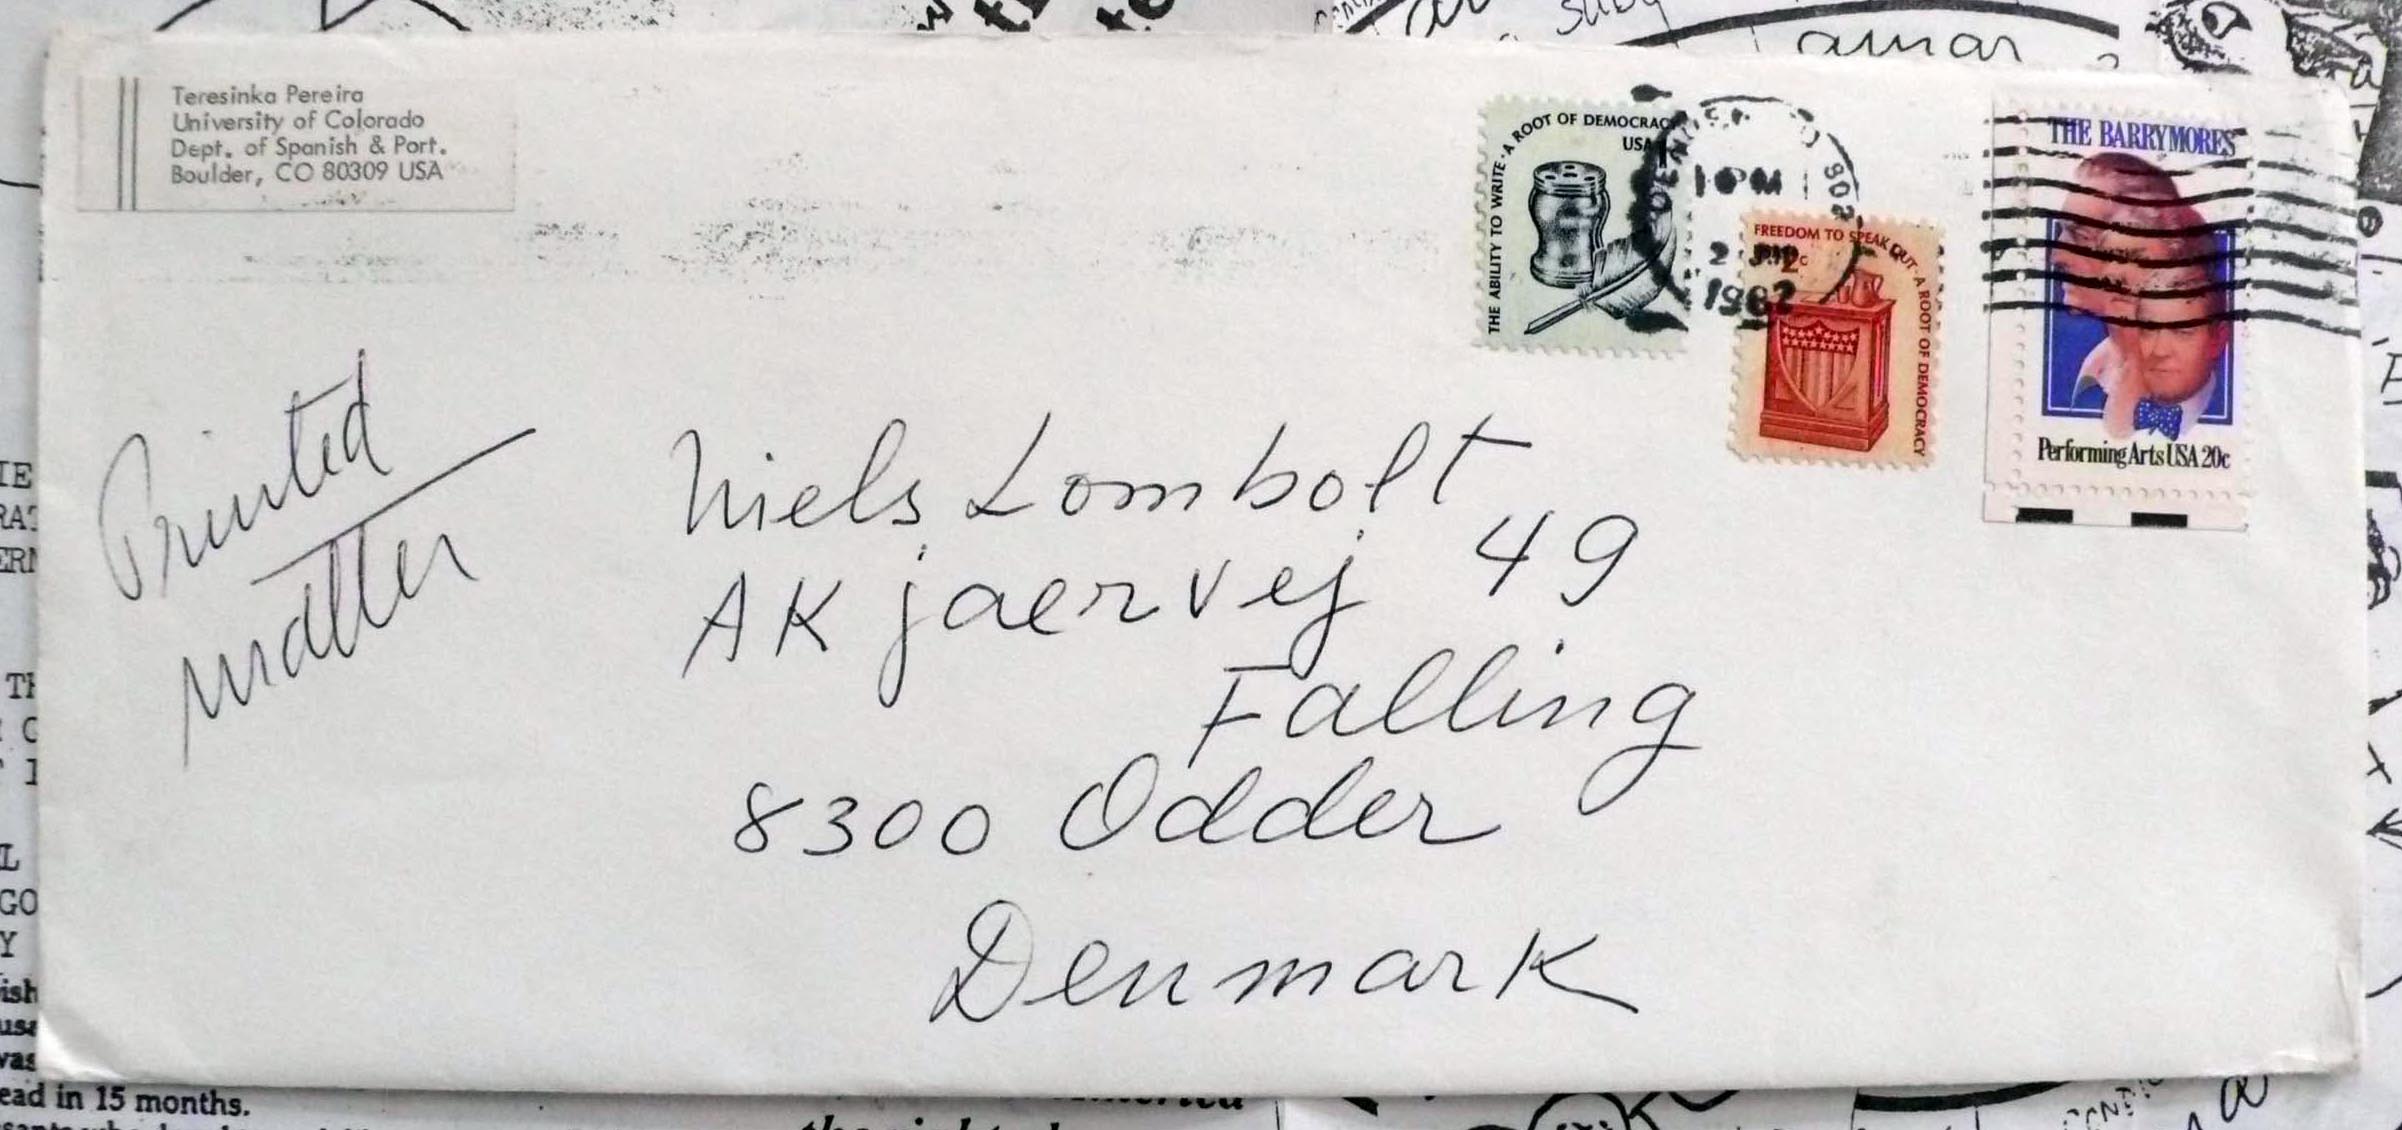 Teresinka Pereira
University of Colorado
Dept. of Spanish & Port.
Boulder, CO 80309 USA
THE ABILITY TO WRITE · A ROOT OF DEMOCRACY
USA
PM
802
2 JUN
1982
FREEDOM TO SPEAK OUT · A ROOT OF DEMOCRACY
2c
THE BARRYMORES
Performing Arts USA 20c
Printed
matter
Niels Lombolt
AKjaervej 49
Falling
8300 Odder
Denmark
amar
ead in 15 months.